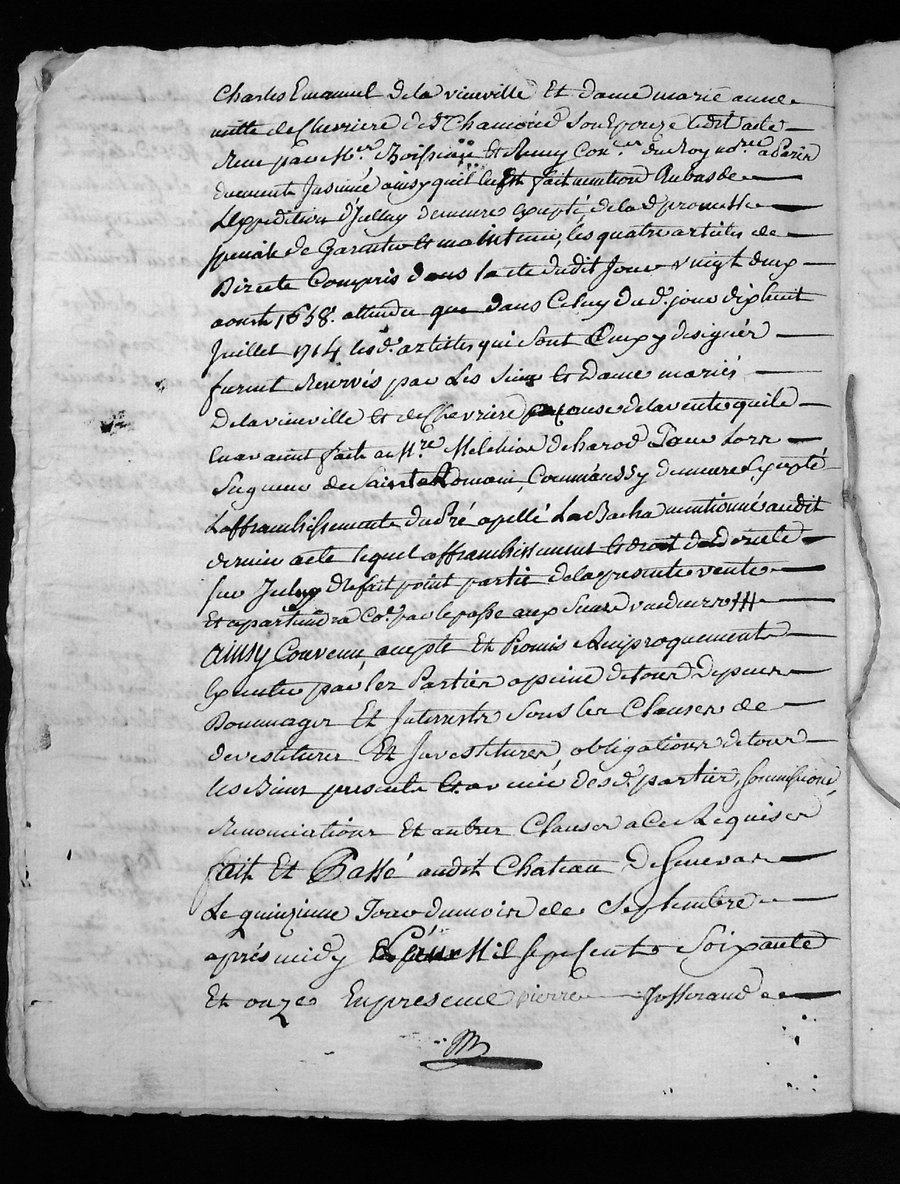 Charles Emanuel de la vieuville Et dame marie anne
mitte de Chevriere de St Chamond Son Epouze ledit acte
Receu par Mes. Boissiau et Remy Con.ers du Roy no.res a Paris
duement Insinué ainsy quil en Est fait mention Au bas de
L'expedition d'Jcelluy demeure Excepté de lad. promesse
speciale de Garentie et maintenue, les quatre articles de
Directe Compris dans lacte dudit Jour vingt deux
aoust 1658. attendu que dans Celuy du d. jour dixhuit
Juillet 1714 lesd. articles qui sont Ceux y designés
furent Reservés par Les Sieur et Dame mariés
De la vieuville et de Chevriere a Cause de la vente quils
En avaient faite a M.re Melchior de harod Pour Lors
Seigneur de Saint Romain, Comme aussy demeure Excepté
L'affranchissement du Pré apellé La Bacha mentionné audit
dernier acte lequel affranchissement et droit de directe
sur Jceluy Ne fait point partie de la presente vente
Et apartiendra Co.e par le passe aux Sieurs vendeurs
Ainsy Convenu, accepté Et Promis Reciproquement
Executer par les Parties a peine de tous Depens
Dommages Et Interrests Sous les Clauses de
devestitures Et Jnvestitures, obligations de tous
les Biens presents Et avenir desd. parties, soumissions,
Renonciations Et autres Clauses a Ce Requises
fait Et Passé audit Chateau De
Le quinzieme Jour du mois de Septembre
aprés midy Mil sept Cents Soixante
Et onze En presence pierre Josserand